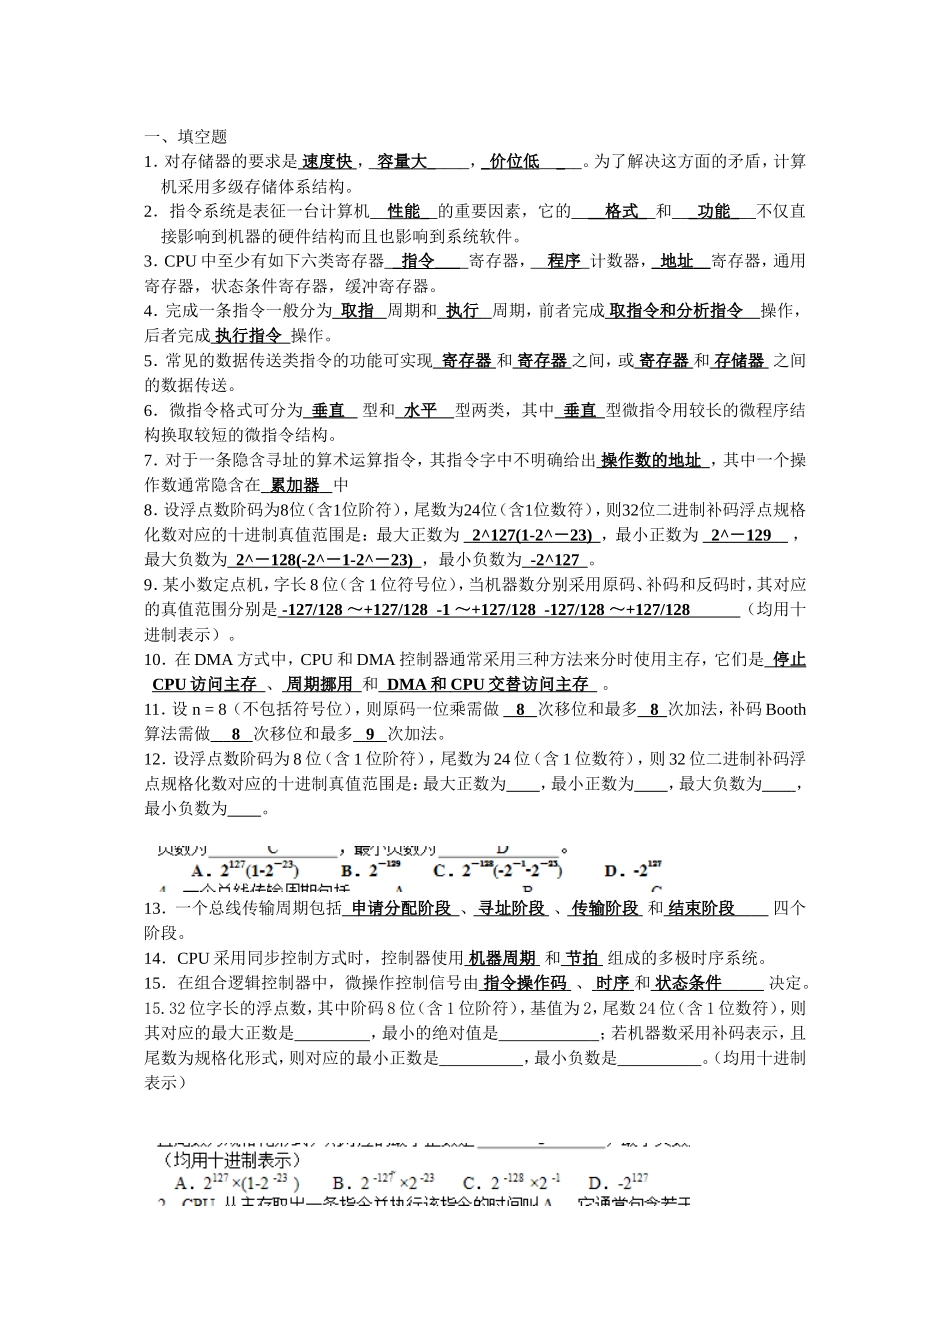 一、填空题
1．对存储器的要求是 速度快 ， 容量大_____，_价位低__ __。为了解决这方面的矛盾，计算
机采用多级存储体系结构。
2．指令系统是表征一台计算机__性能__的重要因素，它的____格式__和___功能___不仅直
接影响到机器的硬件结构而且也影响到系统软件。
3．CPU 中至少有如下六类寄存器__指令____寄存器，__程序_计数器，_地址__寄存器，通用
寄存器，状态条件寄存器，缓冲寄存器。
4．完成一条指令一般分为 取指 周期和 执行 周期，前者完成 取指令和分析指令 操作，
后者完成 执行指令 操作。
5．常见的数据传送类指令的功能可实现 寄存器 和 寄存器 之间，或 寄存器 和 存储器 之间
的数据传送。
6．微指令格式可分为 垂直 型和 水平 型两类，其中 垂直 型微指令用较长的微程序结
构换取较短的微指令结构。
7．对于一条隐含寻址的算术运算指令，其指令字中不明确给出 操作数的地址 ，其中一个操
作数通常隐含在 累加器 中
8．设浮点数阶码为8位（含1位阶符），尾数为24位（含1位数符），则32位二进制补码浮点规格
化数对应的十进制真值范围是：最大正数为 2^127(1-2^－23) ，最小正数为 2^－129 ，
最大负数为 2^－128(-2^－1-2^－23) ，最小负数为 -2^127 。
9．某小数定点机，字长 8 位（含 1 位符号位），当机器数分别采用原码、补码和反码时，其对应
的真值范围分别是 -127/128 ～+127/128 -1 ～+127/128 -127/128 ～+127/128 （均用十
进制表示）。
10．在 DMA 方式中，CPU 和 DMA 控制器通常采用三种方法来分时使用主存，它们是 停止
CPU 访问主存 、 周期挪用 和 DMA 和 CPU 交替访问主存 。
11．设 n = 8（不包括符号位），则原码一位乘需做 8 次移位和最多 8 次加法，补码 Booth
算法需做 8 次移位和最多 9 次加法。
12．设浮点数阶码为 8 位（含 1 位阶符），尾数为 24 位（含 1 位数符），则 32 位二进制补码浮
点规格化数对应的十进制真值范围是：最大正数为____，最小正数为____，最大负数为____，
最小负数为____。
负数为 C ，最小负数为 D 。
A．2^127(1-2^－23) B．2^－129 C．2^－128(-2^－1-2^－23) D．-2^127
4．一个总线传输周期包括 A B C
13．一个总线传输周期包括 申请分配阶段 、 寻址阶段 、 传输阶段 和 结束阶段____ 四个
阶段。
14．CPU 采用同步控制方式时，控制器使用 机器周期 和 节拍 组成的多极时序系统。
15．在组合逻辑控制器中，微操作控制信号由 指令操作码 、 时序 和 状态条件_____ 决定。
15.32 位字长的浮点数，其中阶码 8 位（含 1 位阶符），基值为 2，尾数 24 位（含 1 位数符），则
其对应的最大正数是_________，最小的绝对值是____________；若机器数采用补码表示，且
尾数为规格化形式，则对应的最小正数是__________，最小负数是__________。（均用十进制
表示）
且尾数为规格化形式，则对应的最小正数是 ，最小负数
（均用十进制表示）
A．2^127 ×(1-2^-23 ) B．2^-127 ×2^-23 C．2^-128 ×2^-1 D．-2^127
2．CPU 从主存取出一条指令并执行该指令的时间叫 A ，它通常包含若干